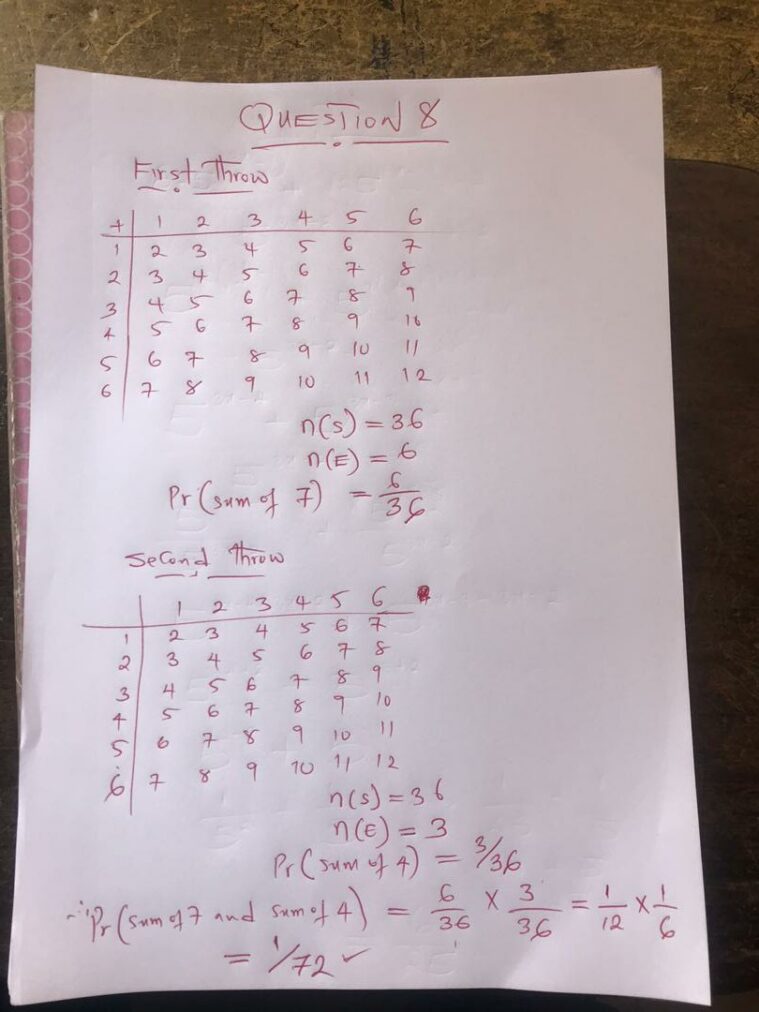 QUESTION 8
First Throw
+ 1 2 3 4 5 6
1 2 3 4 5 6 7
2 3 4 5 6 7 8
3 4 5 6 7 8 9
4 5 6 7 8 9 10
5 6 7 8 9 10 11
6 7 8 9 10 11 12
n(S) = 36
n(E) = 6
Pr(sum of 7) = 6/36
Second Throw
1 2 3 4 5 6
1 2 3 4 5 6 7
2 3 4 5 6 7 8
3 4 5 6 7 8 9
4 5 6 7 8 9 10
5 6 7 8 9 10 11
6 7 8 9 10 11 12
n(S) = 36
n(E) = 3
Pr(sum of 4) = 3/36
∴ Pr(sum of 7 and sum of 4) = 6/36 × 3/36 = 1/12 × 1/6
= 1/72 ✓